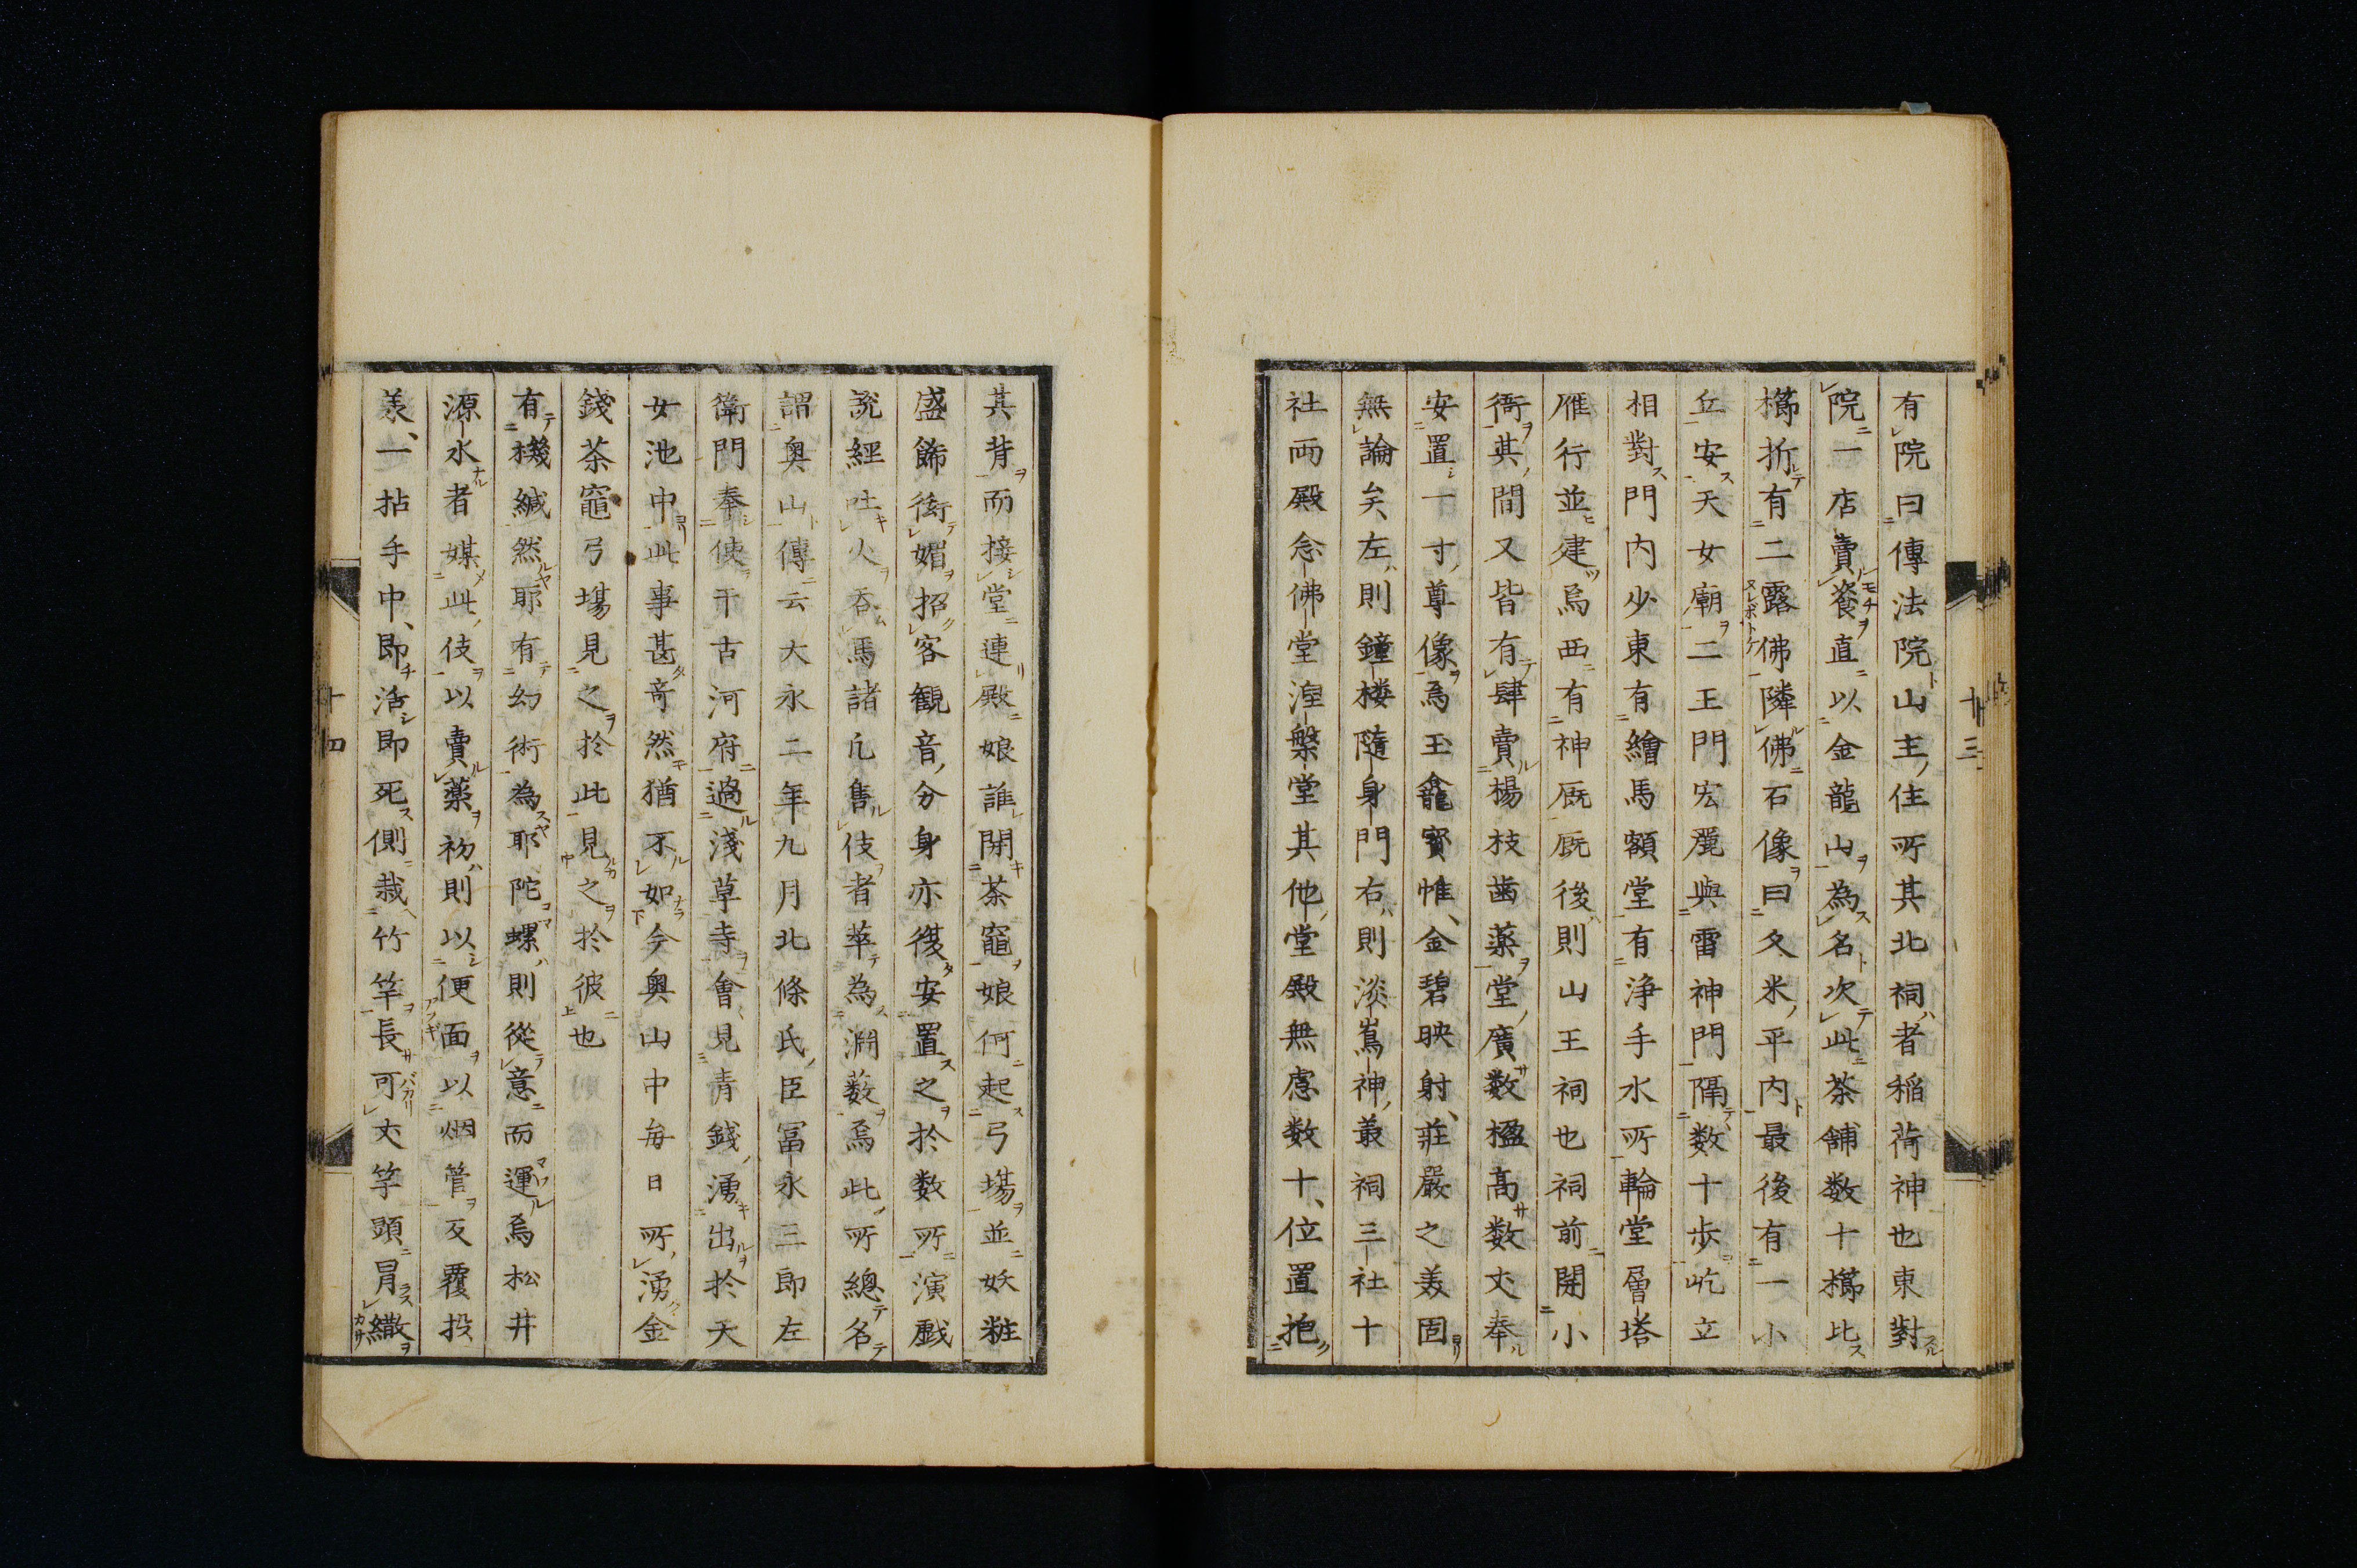 有院曰傳法院山主住所其北祠者稲荷神也東對
院一店賣餈直以金龍山為名次此茶舗数十櫛比
櫛折有二露佛隣佛石像曰久米平内最後有一小
丘安天女廟二王門宏麗與雷神門隔数十歩屹立
相對門内少東有繪馬額堂有浄手水所輪堂層塔
雁行並建焉西有神厩厩後則山王祠也祠前開小
衙其間又皆有肆賣楊枝歯薬堂廣数楹高数丈奉
安置一寸尊像為玉龕寳帷金碧映射荘嚴之美固
無論矣左則鐘楼隨身門右則淡嶌神叢祠三社十
社両殿念佛堂涅槃堂其他堂殿無慮数十位置抱
十三
其背而接堂連殿娘誰開茶竈娘何起弓場並妖粧
盛飾衒媚招客観音分身亦復安置之於数所演戯
説經吐火呑馬諸凡售伎者萃為淵薮焉此所總名
謂奥山傳云大永二年九月北條氏臣冨永三郎左
衛門奉使于古河府過淺草寺會見青錢湧出於天
女池中此事甚奇然猶不如今奥山中毎日所湧金
錢茶竈弓場見之於此見之於彼也
有機緘然耶有幻術為耶陀螺則從意而運焉松井
源水者媒此伎以賣薬初則以便面以烟管反覆投
羨一拈手中即活即死側栽竹竿長可丈竿頭冐繖
十四